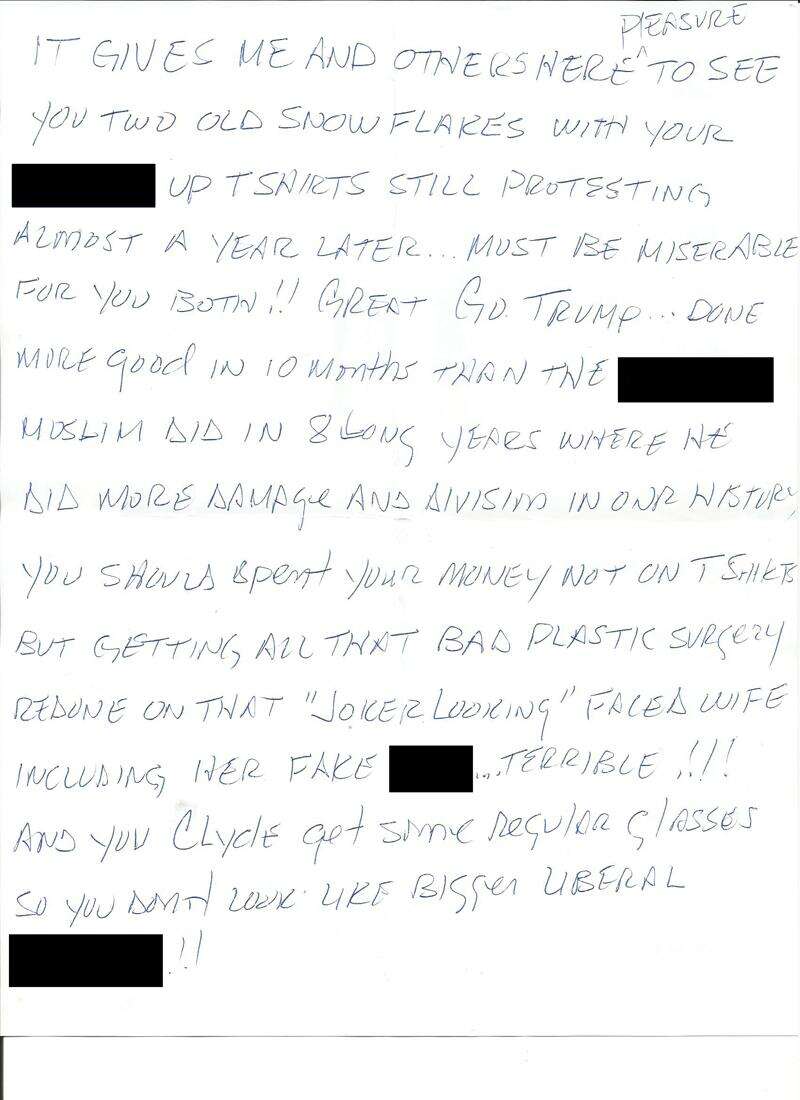 PLEASURE
IT GIVES ME AND OTHERS HERE ^ TO SEE
YOU TWO OLD SNOWFLAKES WITH YOUR
UP T SHIRTS STILL PROTESTING
ALMOST A YEAR LATER... MUST BE MISERABLE
FOR YOU BOTH!! GREAT GO. TRUMP... DONE
MORE good IN 10 Months THAN THE
MUSLIM DID IN 8 LONG YEARS WHERE HE
DID MORE DAMAGE AND DIVISION IN OUR HISTORY
YOU SHOULD spent YOUR MONEY NOT ON T SHIRTS
BUT GETTING ALL THAT BAD PLASTIC SURGERY
REDONE ON THAT "JOKER LOOKING" FACED WIFE
INCLUDING HER FAKE ...TERRIBLE!!!
AND YOU CLYDE get some Regular glasses
SO YOU DON'T LOOK LIKE BIGGER LIBERAL
!!